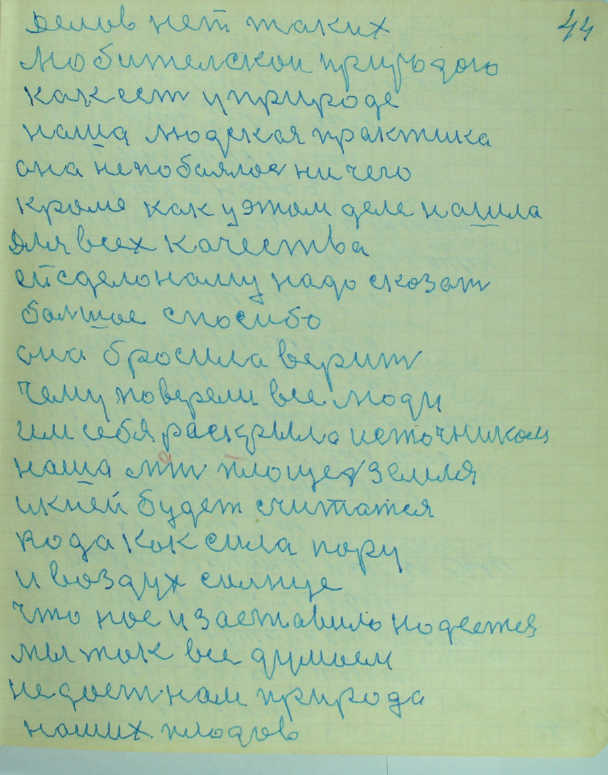 44
делов нет таких
любителской природою
как ест у природе
наша людская практика
она непобаялоя ничего
кроме как у этом деле нашла
для всех качества
ей сделоному надо сказат
болшое спосибо
она бросила верит
чему поверели все люди
им себя раскрыла источником
наша мат земля
и кней будет считатся
вода как сила пору
и воздух солнце
что нос и заставило надеятся
мы так все думаем
недоест нам природа
наших плодов